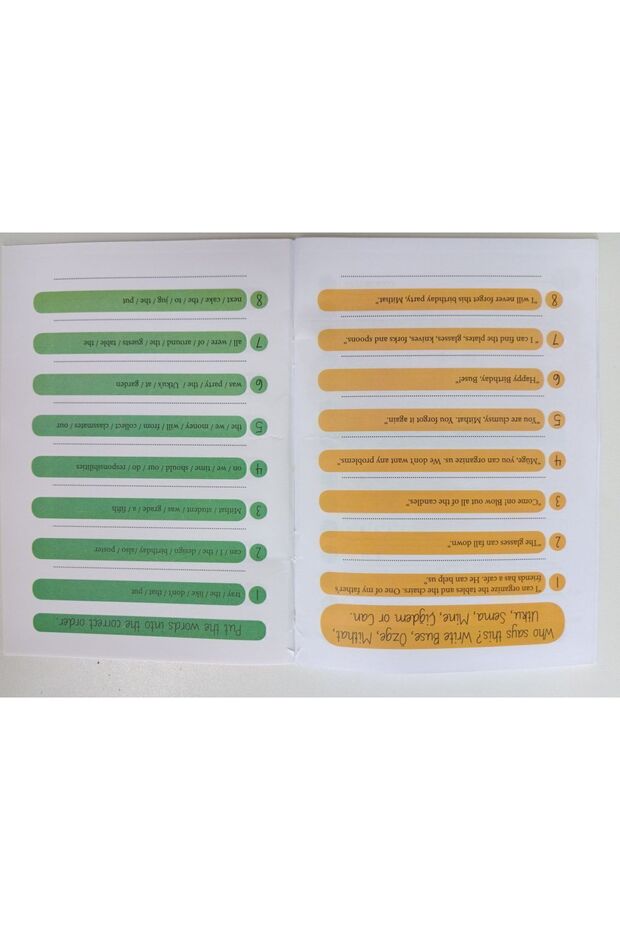 Who says this? Write Buse, Özge, Mithat,
Utku, Sema, Mine, Çiğdem or Can.
1 "I can organize the tables and the chairs. One of my father's
friends has a cafe. He can help us."
2 "The glasses can fall down."
3 "Come on! Blow out all of the candles."
4 "Müge, you can organize us. We don't want any problems."
5 "You are clumsy, Mithat. You forgot it again."
6 "Happy Birthday, Buse!"
7 "I can find the plates, glasses, knives, forks and spoons."
8 "I will never forget this birthday party, Mithat."
Put the words into the correct order.
1 tray / the / like / don't / that / put
2 can / I / the / design / birthday /also / poster
3 Mithat / student / was / grade / a / fifth
4 on / we / time / should / our / do / responsibilities
5 the / we / money / will / from / collect / classmates / our
6 was / party / the / Utku's / at / garden
7 all / were / of / around / the / guests / table / the
8 next / cake / the / to / jug / the / put